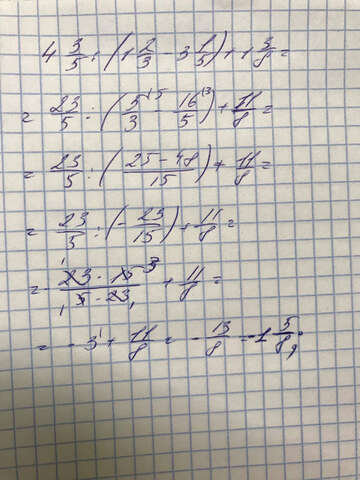 4 3/5 : (1 2/3 - 3 1/5) + 1 3/8 =
= 23/5 : (5/3 ⁽⁵ - 16/5 ⁽³) + 11/8 =
= 23/5 : (25 - 48/15) + 11/8 =
= 23/5 : (- 23/15) + 11/8 =
= - 23 · 15/5 · 23 + 11/8 =
= - 3 + 11/8 = - 13/8 = -1 5/8